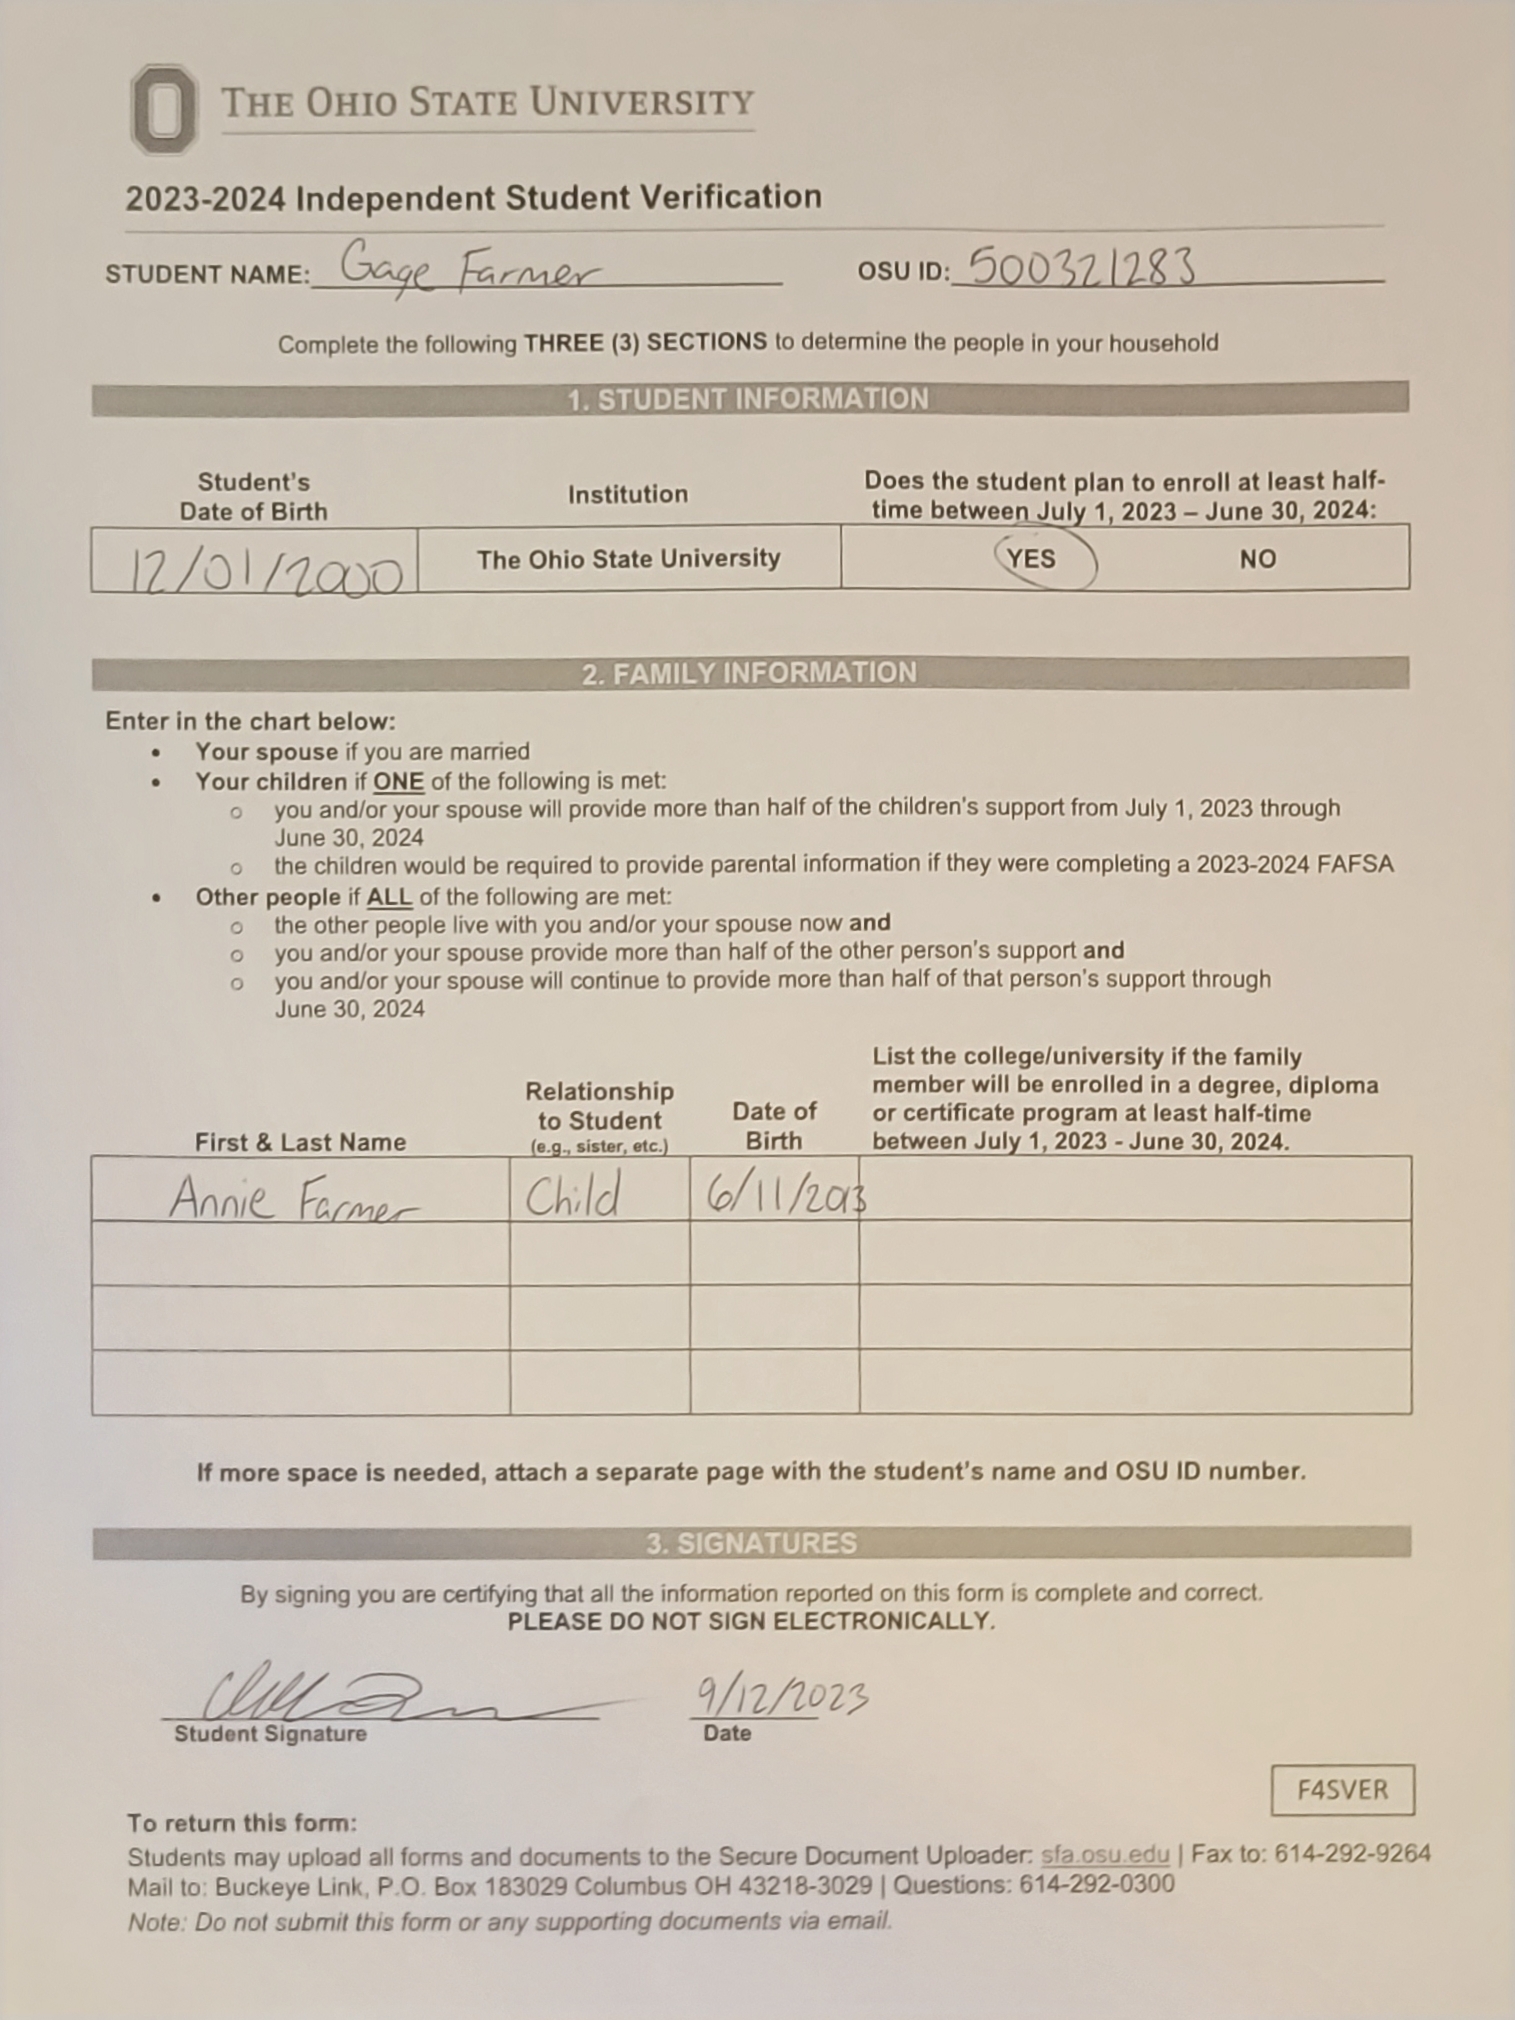 THE OHIO STATE UNIVERSITY
2023-2024 Independent Student Verification
STUDENT NAME: Gage Farmer OSU ID: 500321283
Complete the following THREE (3) SECTIONS to determine the people in your household
1. STUDENT INFORMATION
Student's
Date of Birth
Institution
Does the student plan to enroll at least half-
time between July 1, 2023 – June 30, 2024:
12/01/2000 The Ohio State University YES NO
2. FAMILY INFORMATION
Enter in the chart below:
• Your spouse if you are married
• Your children if ONE of the following is met:
o you and/or your spouse will provide more than half of the children's support from July 1, 2023 through
June 30, 2024
o the children would be required to provide parental information if they were completing a 2023-2024 FAFSA
• Other people if ALL of the following are met:
o the other people live with you and/or your spouse now and
o you and/or your spouse provide more than half of the other person's support and
o you and/or your spouse will continue to provide more than half of that person's support through
June 30, 2024
First & Last Name
Relationship
to Student
(e.g., sister, etc.)
Date of
Birth
List the college/university if the family
member will be enrolled in a degree, diploma
or certificate program at least half-time
between July 1, 2023 - June 30, 2024.
Annie Farmer Child 6/11/2013
If more space is needed, attach a separate page with the student's name and OSU ID number.
3. SIGNATURES
By signing you are certifying that all the information reported on this form is complete and correct.
PLEASE DO NOT SIGN ELECTRONICALLY.
9/12/2023
Student Signature Date
F4SVER
To return this form:
Students may upload all forms and documents to the Secure Document Uploader: sfa.osu.edu | Fax to: 614-292-9264
Mail to: Buckeye Link, P.O. Box 183029 Columbus OH 43218-3029 | Questions: 614-292-0300
Note: Do not submit this form or any supporting documents via email.